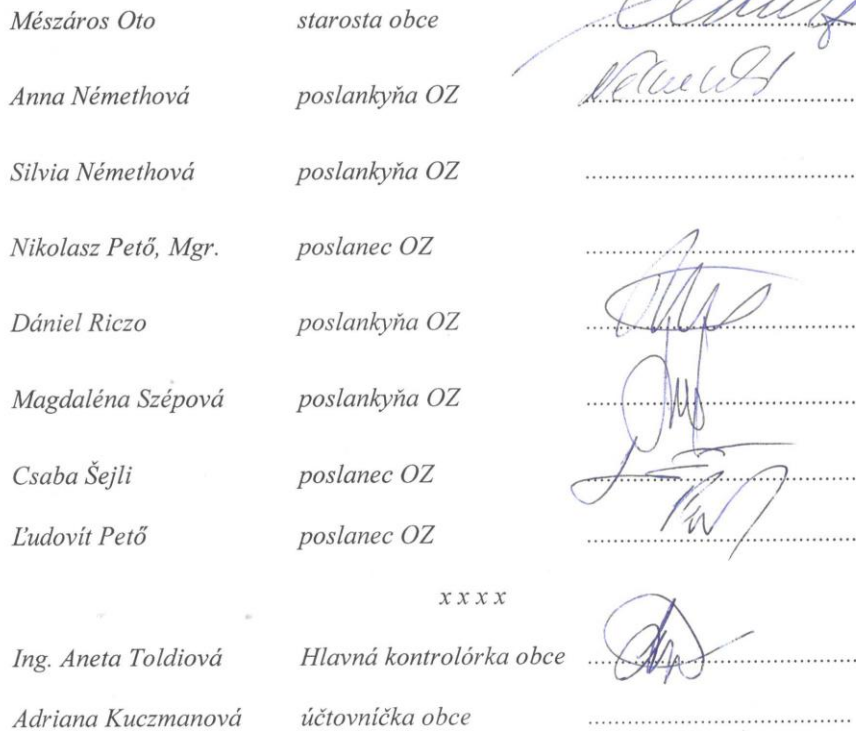 Mészáros Oto starosta obce ........................
Anna Némethová poslankyňa OZ ........................
Silvia Némethová poslankyňa OZ ........................
Nikolasz Pető, Mgr. poslanec OZ ........................
Dániel Riczo poslankyňa OZ ........................
Magdaléna Szépová poslankyňa OZ ........................
Csaba Šejli poslanec OZ ........................
Ľudovít Pető poslanec OZ ........................
x x x x
Ing. Aneta Toldiová Hlavná kontrolórka obce ........................
Adriana Kuczmanová účtovníčka obce ........................